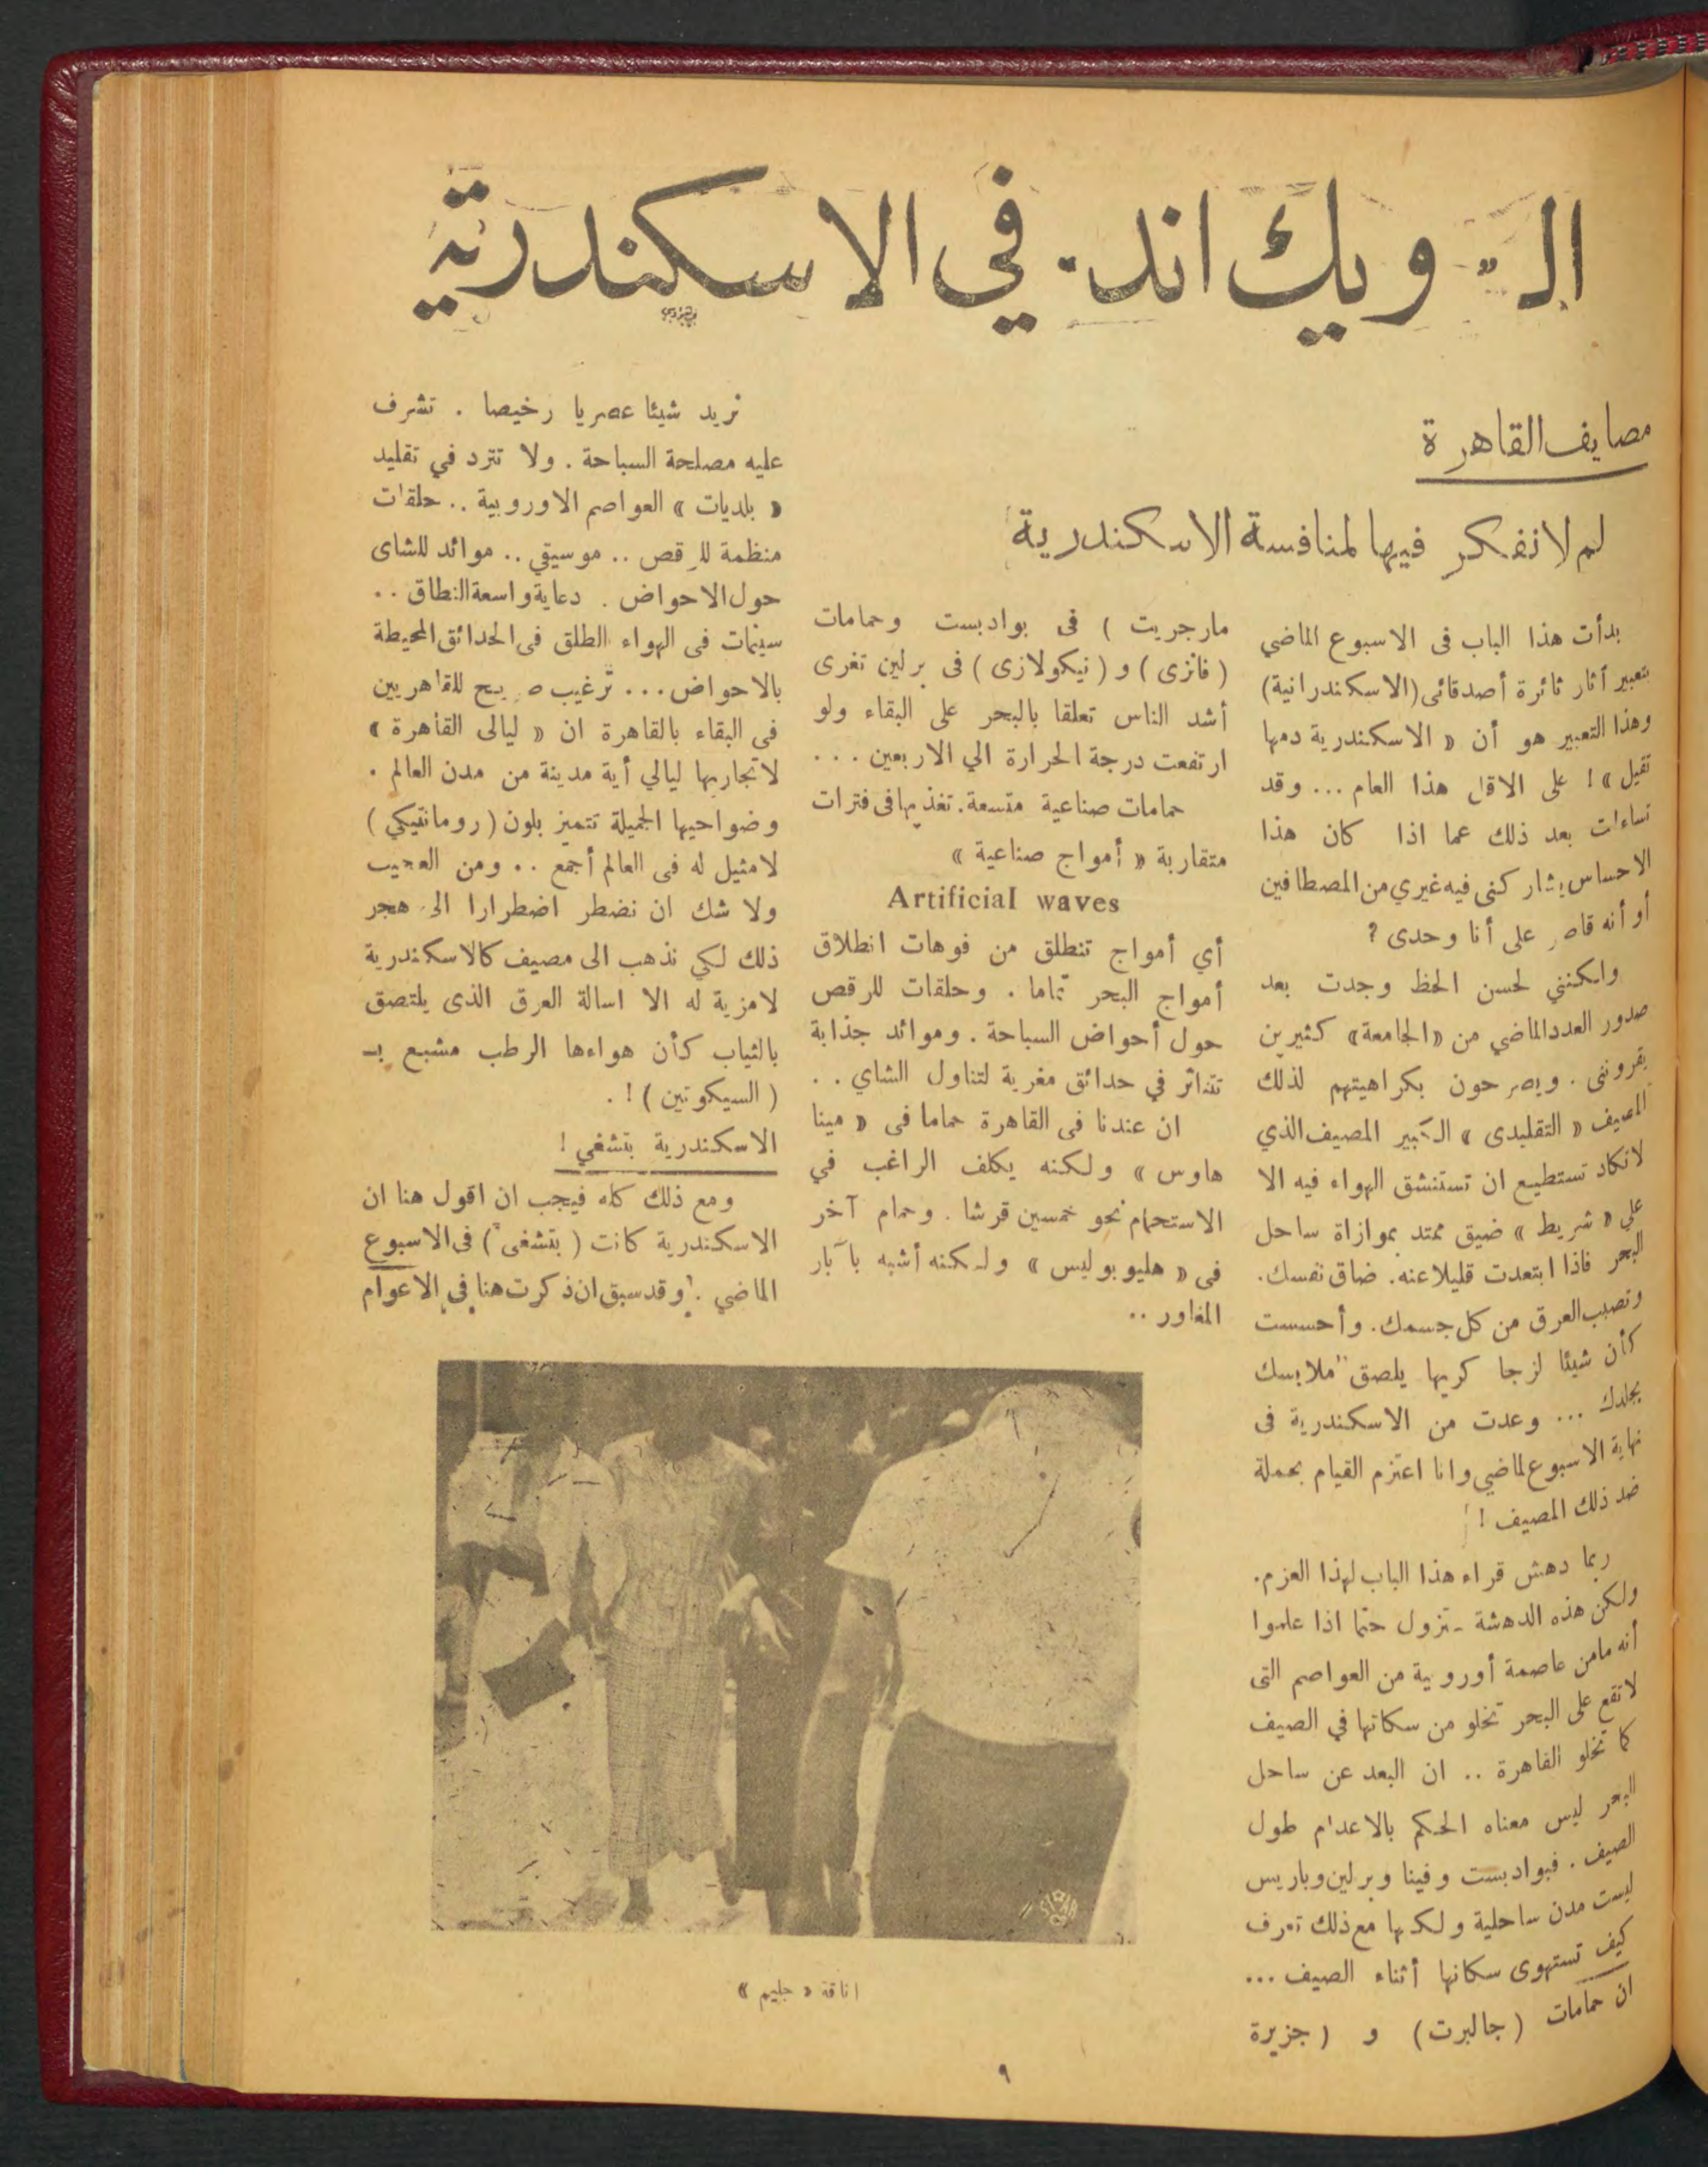 الـ "ويك اند" في الاسكندرية
مصايف القاهرة
لم لا نفكر فيها لمنافسة الاسكندرية
بدأت هذا الباب فى الاسبوع الماضي
بتعبير أثار ثائرة أصدقائى (الاسكندرانية)
وهذا التعبير هو أن « الاسكندرية دمها
تقيل »! على الاقل هذا العام ... وقد
تساءلت بعد ذلك عما اذا كان هذا
الاحساس يشاركنى فيه غيري من المصطافين
أو أنه قاصر على أنا وحدى ?
ولكننى لحسن الحظ وجدت بعد
صدور العدد الماضي من «الجامعة» كثيرين
يقروننى . ويصرحون بكراهيتهم لذلك
المصيف « التقليدى » الكبير المصيف الذي
لاتكاد تستطيع ان تستنشق الهواء فيه الا
علي « شريط » ضيق ممتد بموازاة ساحل
البحر فاذا ابتعدت قليلا عنه. ضاق نفسك.
وتصبب العرق من كل جسمك. وأحسست
كأن شيئا لزجا كريها يلصق ملابسك
بجلدك ... وعدت من الاسكندرية فى
نهاية الاسبوع لماضي وانا اعتزم القيام بحملة
ضد ذلك المصيف !
ربما دهش قراء هذا الباب لهذا العزم.
ولكن هذه الدهشة ستزول حتما اذا علموا
أنه مامن عاصمة أوروبية من العواصم التى
لاتقع على البحر تخلو من سكانها في الصيف
كما تخلو القاهرة .. ان البعد عن ساحل
البحر ليس معناه الحكم بالاعدام طول
الصيف . فبوادبست وفينا وبرلين وباريس
ليست مدن ساحلية ولكنها مع ذلك تعرف
كيف تستهوى سكانها أثناء الصيف ...
ان حمامات (جالبرت) و (جزيرة
مارجريت ) فى بوادبست وحمامات
(فانزى) و (نيكولازى) فى برلين تغرى
أشد الناس تعلقا بالبحر على البقاء ولو
ارتفعت درجة الحرارة الي الاربعين ...
حمامات صناعية متسعة. تغذيها فى فترات
متقاربة « أمواج صناعية »
Artificial waves
أي أمواج تنطلق من فوهات انطلاق
أمواج البحر تماما . وحلقات للرقص
حول أحواض السباحة . وموائد جذابة
تتناثر في حدائق مغرية لتناول الشاي ..
ان عندنا فى القاهرة حماما فى « مينا
هاوس » ولكنه يكلف الراغب في
الاستحمام نحو خمسين قرشا . وحمام آخر
فى « هليوبوليس » ولكنه أشبه بآبار
المغاور ..
نريد شيئا عصريا رخيصا . تشرف
عليه مصلحة السباحة . ولا تتردد في تقليد
« بلديات » العواصم الاوروبية .. حلقات
منظمة للرقص .. موسيقي .. موائد للشاى
حول الاحواض . دعاية واسعة النطاق ..
سينمات فى الهواء الطلق فى الحدائق المحيطة
بالاحواض ... ترغيب صريح للقاهريين
فى البقاء بالقاهرة ان « ليالى القاهرة »
لاتجاريها ليالي أية مدينة من مدن العالم .
وضواحيها الجميلة تتميز بلون (رومانتيكي)
لامثيل له فى العالم أجمع .. ومن العجيب
ولا شك ان نضطر اضطرارا الى هجر
ذلك لكي نذهب الى مصيف كالاسكندرية
لامزية له الا اسالة العرق الذى يلتصق
بالثياب كأن هواءها الرطب مشبع بـ
(السيكوتين) ! .
الاسكندرية بتشغي !
ومع ذلك كله فيجب ان اقول هنا ان
الاسكندرية كانت ( بتشغى ) فى الاسبوع
الماضي . وقد سبق ان ذكرت هنا في الاعوام
اناقة « جليم »
٩